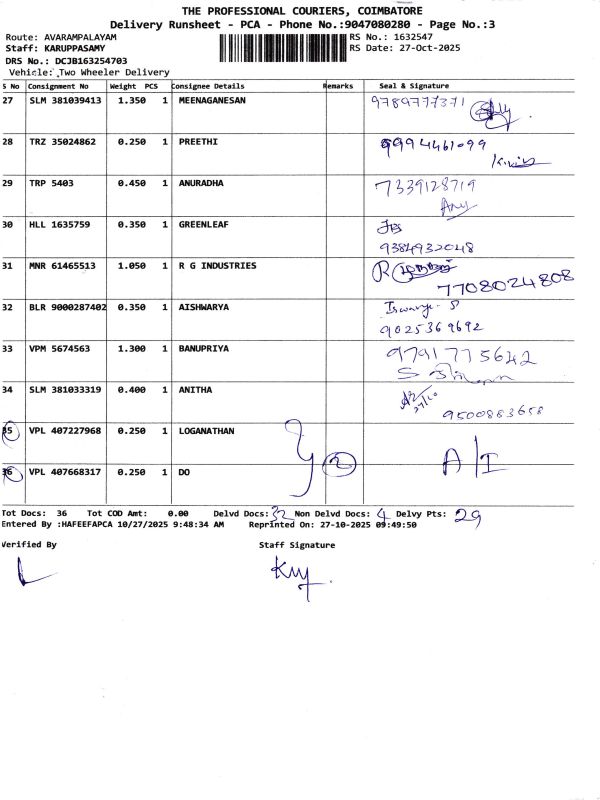 THE PROFESSIONAL COURIERS, COIMBATORE
Delivery Runsheet - PCA - Phone No.:9047080280 - Page No.:3
Route: AVARAMPALAYAM RS No.: 1632547
Staff: KARUPPASAMY RS Date: 27-Oct-2025
DRS No.: DCJB163254703
Vehicle: Two Wheeler Delivery
S No Consignment No Weight PCS Consignee Details Remarks Seal & Signature
27 SLM 381039413 1.350 1 MEENAGANESAN 9789777371
28 TRZ 35024862 0.250 1 PREETHI 9994461099
29 TRP 5403 0.450 1 ANURADHA 7339128719
Anu
30 HLL 1635759 0.350 1 GREENLEAF
9384932048
31 MNR 61465513 1.050 1 R G INDUSTRIES R
7708024808
32 BLR 9000287402 0.350 1 AISHWARYA Iswarya. S
9025369692
33 VPM 5674563 1.300 1 BANUPRIYA 9791775642
34 SLM 381033319 0.400 1 ANITHA 27/10
9500883658
35 VPL 407227968 0.250 1 LOGANATHAN
36 VPL 407668317 0.250 1 DO 2 A/I
Tot Docs: 36 Tot COD Amt: 0.00 Delvd Docs: 32 Non Delvd Docs: 4 Delvy Pts: 29
Entered By :HAFEEFAPCA 10/27/2025 9:48:34 AM Reprinted On: 27-10-2025 09:49:50
Verified By Staff Signature